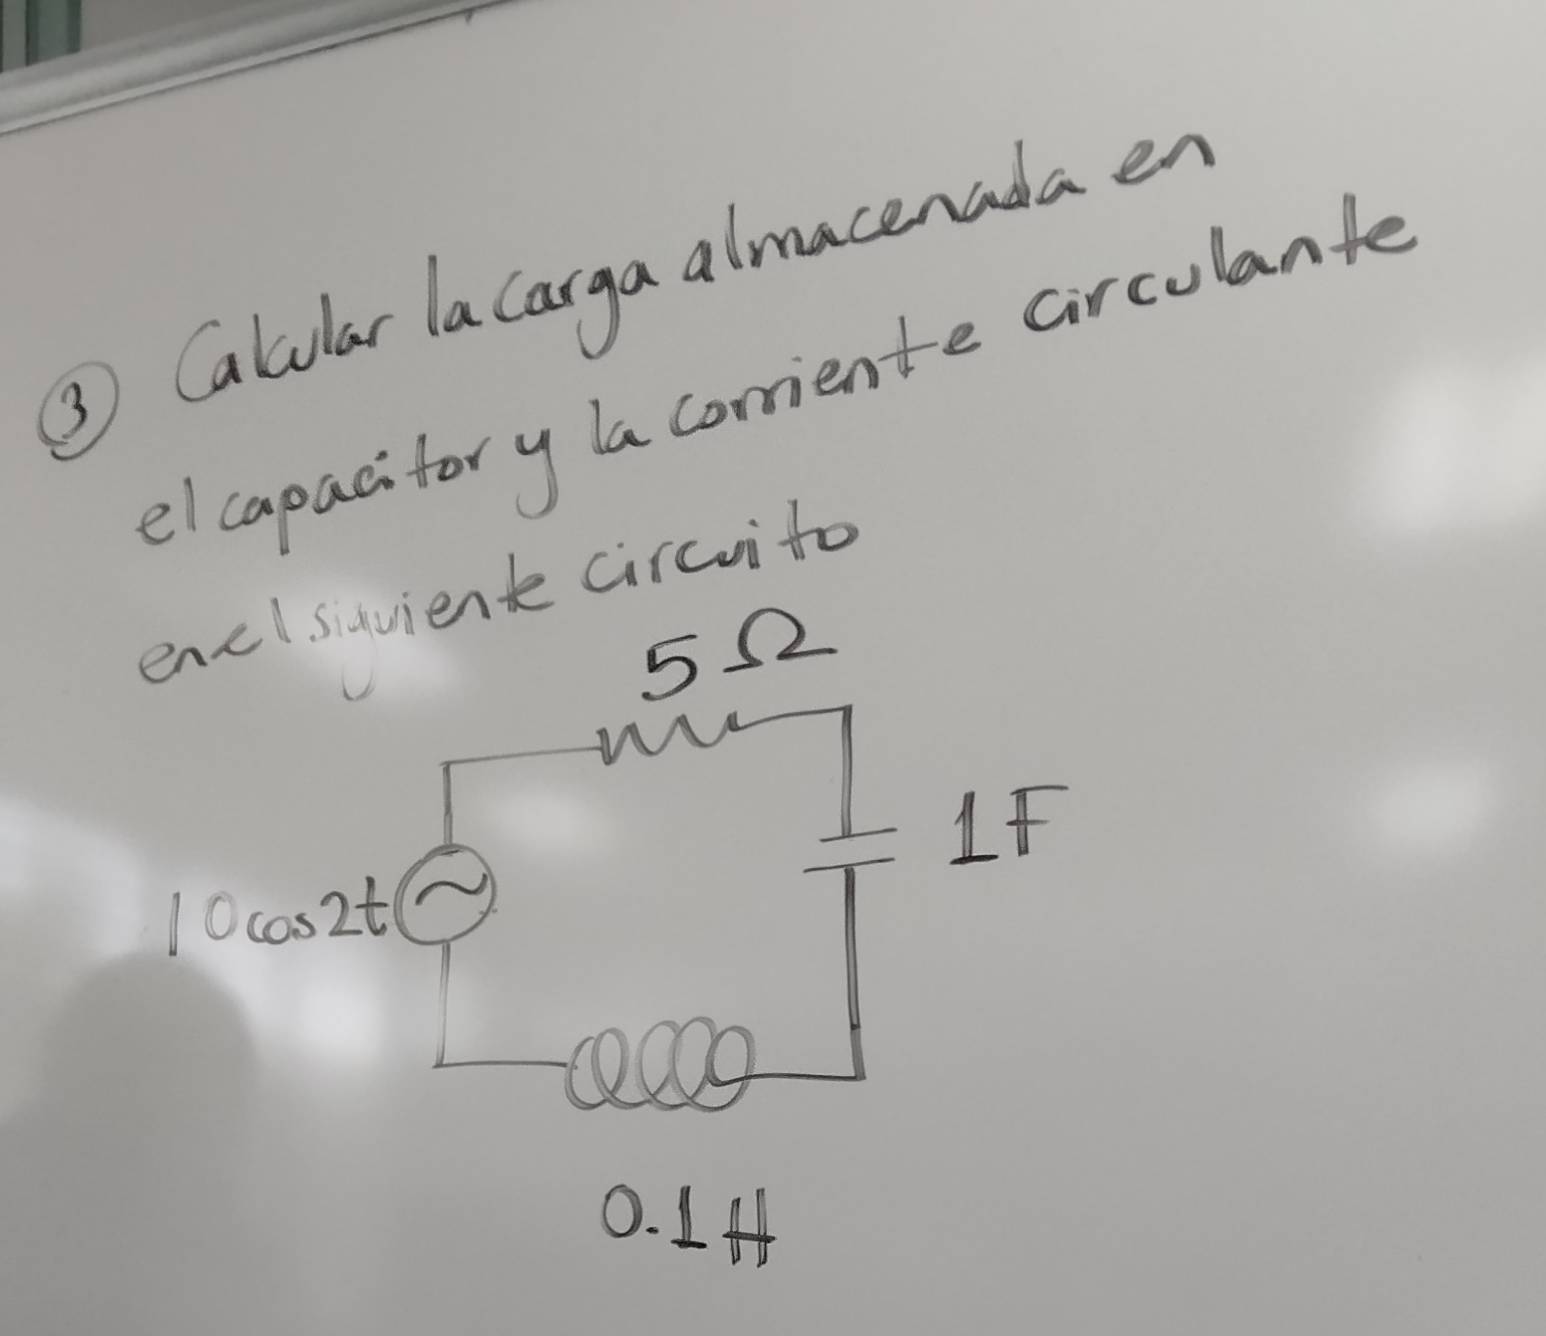 ③ Calcular la carga almacenada en
el capacitor y la corriente circulante
en el siguiente circuito
5 Ω
1F
10cos2t
0.1H